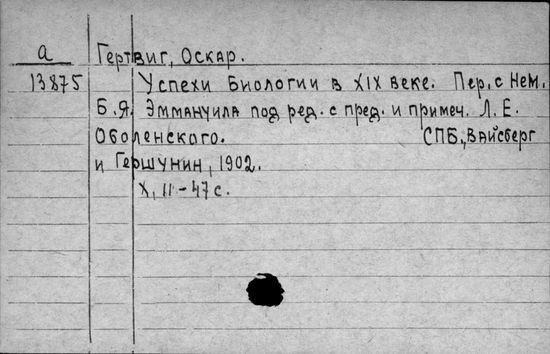 а Гертвиг, Оскар.
13875 Успехи биологии в XIX веке. Пер. с нем.
Б.Я. Эммануила под ред. с пред. и примеч. Л. Е.
Оболенского. СПБ., Вайсберг
и Гершунин, 1902.
X, 11-47 с.